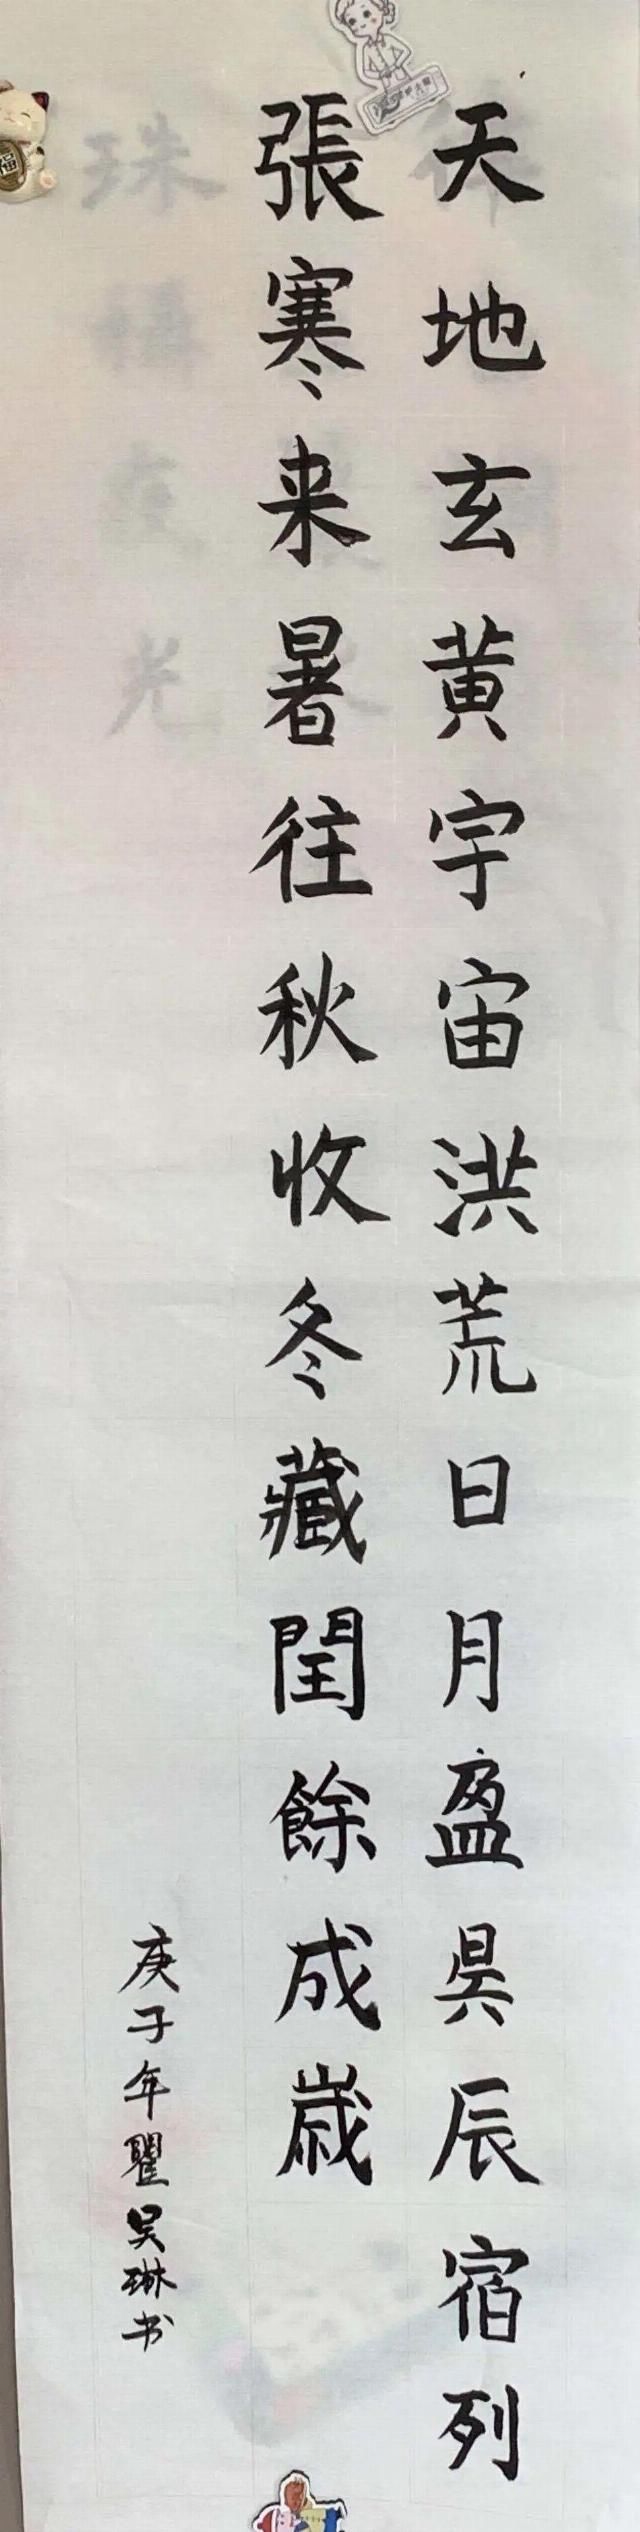 天地玄黄宇宙洪荒日月盈昃辰宿列
張寒来暑往秋收冬藏閏餘成歲
庚子年瞿吴琳书
珠稱夜光
福